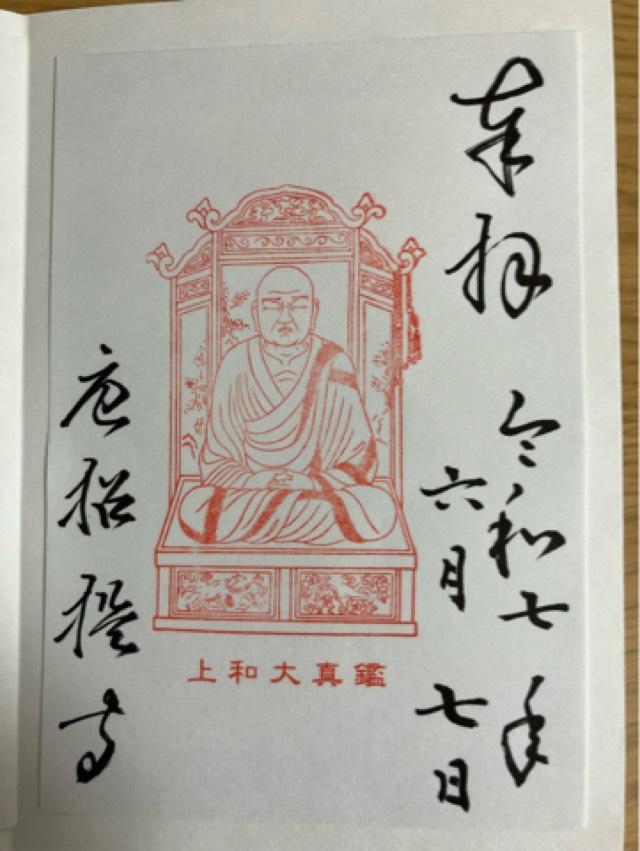 奉拝
令和七年
六月七日
上和大真鑑
唐招提寺